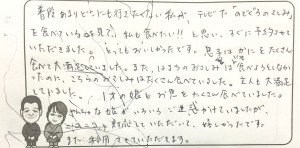 普段あまりどこにも行きたくない私が、テレビで「のどぐろのさしみ」
を食べている所を見て、私も食べたい!!と思い、すぐに予約させて
いただきました。とってもおいしかったです。息子はかにをたくさん
食べて大満足していました。また、はまちのおさしみは食べようとしなか
ったのに、こちらのおさしみはたくさん食べていました。主人も大満足
していました。1才の娘もお魚をたくさん食べていました。
やんちゃな娘がいろいろご迷惑かけていましたが、
ニコニコと対応していただいて、嬉しかったです。
また利用させていただきます。